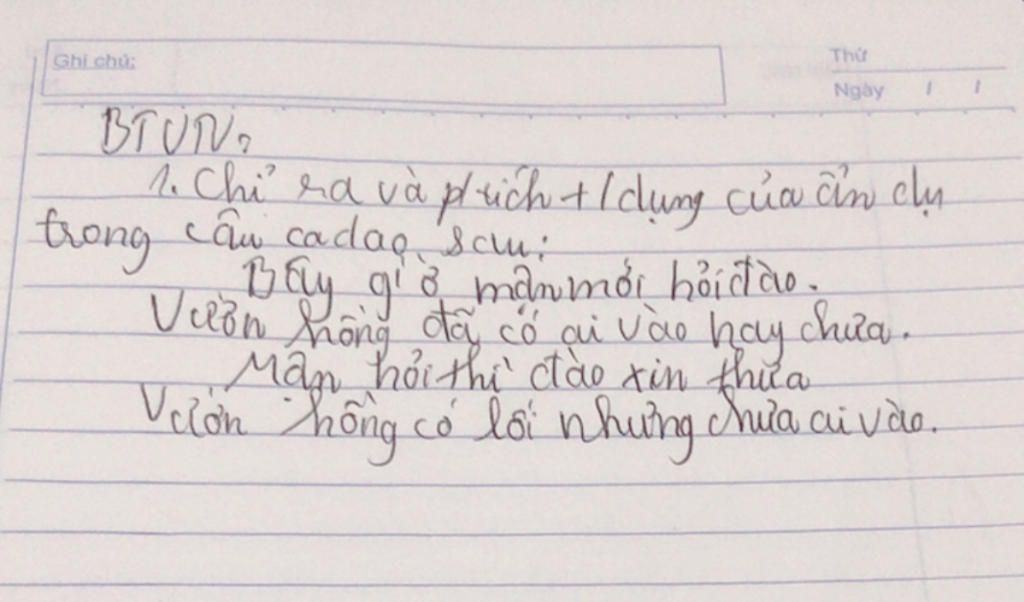 Ghi chú:
Thứ
Ngày / /
BTVN:
1. Chỉ ra và p/tích t/dụng của ẩn dụ
trong câu ca dao sau:
Bây giờ mận mới hỏi đào.
Vườn hồng đã có ai vào hay chưa.
Mận hỏi thì đào xin thưa
Vườn hồng có lối nhưng chưa ai vào.